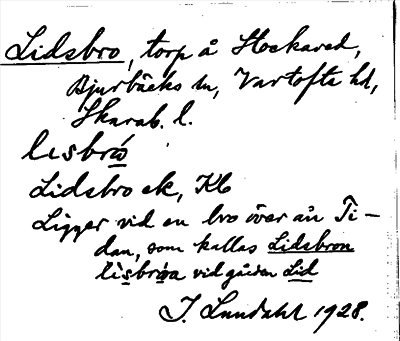 Lidsbro, torp å Stockared,
Djurbäcks sn, Vartofta hd,
Skarab. l.
lisbrò
Lidsbro ek, Kb
Ligger vid en bro över ån Ti-
dan, som kallas Lidsbron
lìsbróa vid gården Lid
J. Lundahl 1928.